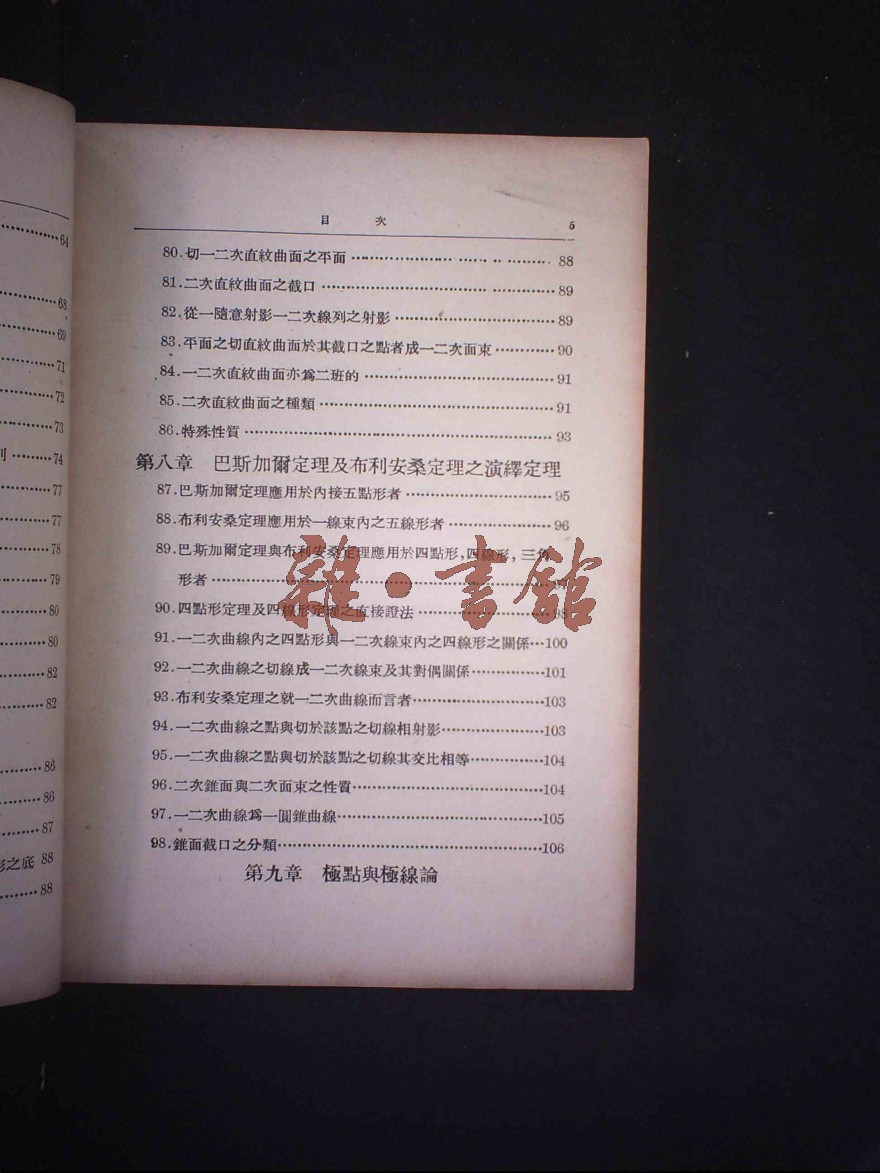 64
68
69
71
72
73
列 74
77
77
78
79
80
80
82
82
86
86
87
形之底 88
88
目 次 5
80.切一二次直紋曲面之平面 88
81.二次直紋曲面之截口 89
82.從一隨意射影一二次線列之射影 89
83.平面之切直紋曲面於其截口之點者成一二次面束 90
84.一二次直紋曲面亦爲二班的 91
85.二次直紋曲面之種類 91
86.特殊性質 93
第八章 巴斯加爾定理及布利安桑定理之演繹定理
87.巴斯加爾定理應用於內接五點形者 95
88.布利安桑定理應用於一線束內之五線形者 96
89.巴斯加爾定理與布利安桑定理應用於四點形,四線形,三角
形者
90.四點形定理及四線形定理之直接證法 98
91.一二次曲線內之四點形與一二次線束內之四線形之關係 100
92.一二次曲線之切線成一二次線束及其對偶關係 101
93.布利安桑定理之就一二次曲線而言者 103
94.一二次曲線之點與切於該點之切線相射影 103
95.一二次曲線之點與切於該點之切線其交比相等 104
96.二次錐面與二次面束之性質 104
97.一二次曲線爲一圓錐曲線 105
98.錐面截口之分類 106
第九章 極點與極線論
雜·書館